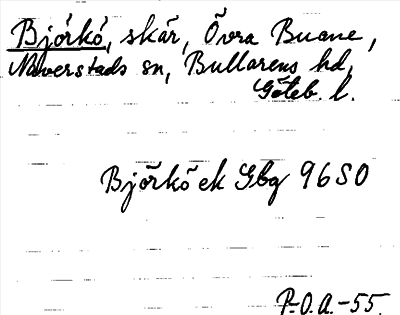 Björkö, skär, Övra Buane,
Naverstads sn, Bullarens hd,
Göteb. l.
Björkö ek Gbg 96 SO
P-O.A.-55.